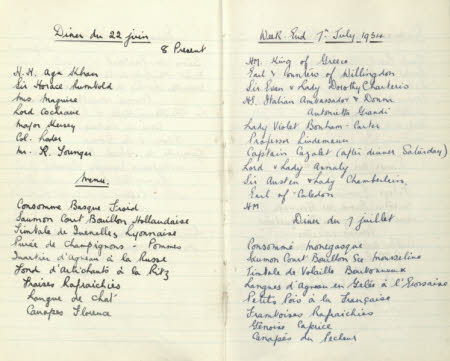 Diner du 22 juin
8 Present
H.H. Aga Khan
Sir Horace Rumbold
Mrs Maguire
Lord Cochrane
Major Kersey
Col.
Mr. R. Younger
Menu.
Consomme Basque Froid
Saumon Court Bouillon Hollandaise
Timbale de Quenelles Lyonnaise
Purée de Champignons - Pommes
Quartier d'Agneau à la Russe
Fond d'Artichauts à la Ritz
Fraises Rafraichies
Langue de Chat
Canapes Florence
Week-End 7th July 1934
HM. King of Greece
Earl & Countess of Willingdon
Sir Evan & Lady Dorothy Charteris
HE. Italian Ambassador & Donna
Antonietta Grandi
Lady Violet Bonham-Carter
Professor Lindemann
Captain Cazalet (after dinner Saturday)
Lord & Lady Annaly
Sir Austen & Lady Chamberlain
Earl of Caledon
HM
Diner du 7 juillet
Consommé monegasque
Saumon Court Bouillon Sce Mousseline
Timbale de Volaille
Langues d'Agneau en Gelée à l'Ecossaise
Petits Pois à la Française
Framboises Rafraichies
Génoise Caprice
Canapés du Pecheur